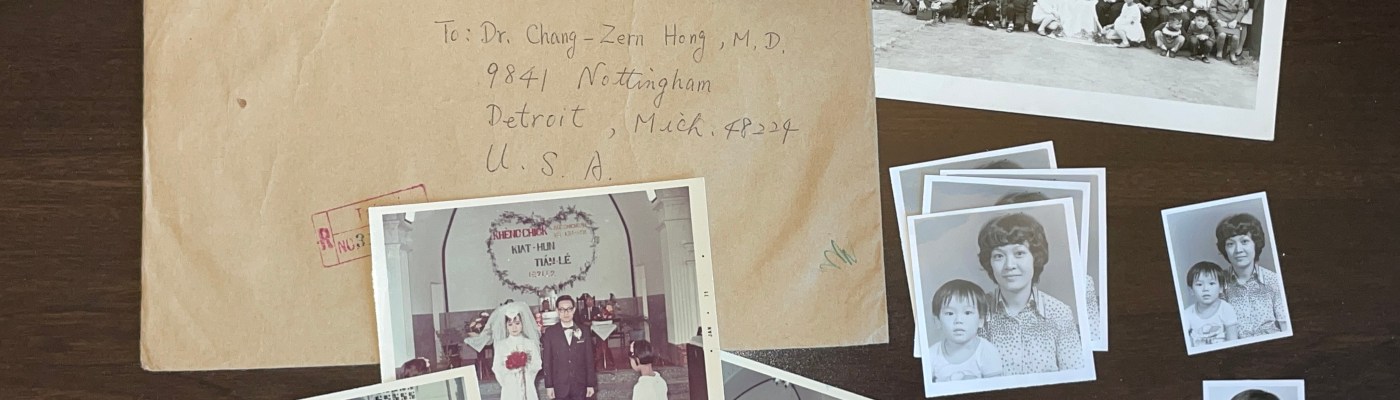 To: Dr. Chang-Zern Hong, M.D.
9841 Nottingham
Detroit, Mich. 48224
U. S. A.
R
NO.3
KIAT-HUN
TIÁⁿ-LÉ